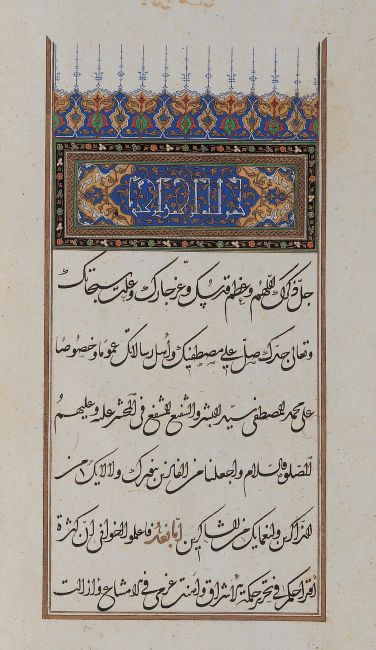 جل ذكرك اللهم وعظم قدسك وعز جارك وعلت سبحاتك
وتعالى جدك صل على مصطفيك وأهل رسالاتك عموما وخصوصا
على محمد المصطفى سيد البشر والشفيع المشفع في المحشر عليه وعليهم
الصلوة والسلام واجعلنا من الفائزين بنورك ولآلائك من
الذاكرين ولنعمائك من الشاكرين أما بعد فاعلموا اخواني ان كثرة
اقتراحكم في تحرير حكمة الاشراق واوهنت عزمي في الامتناع وازالت